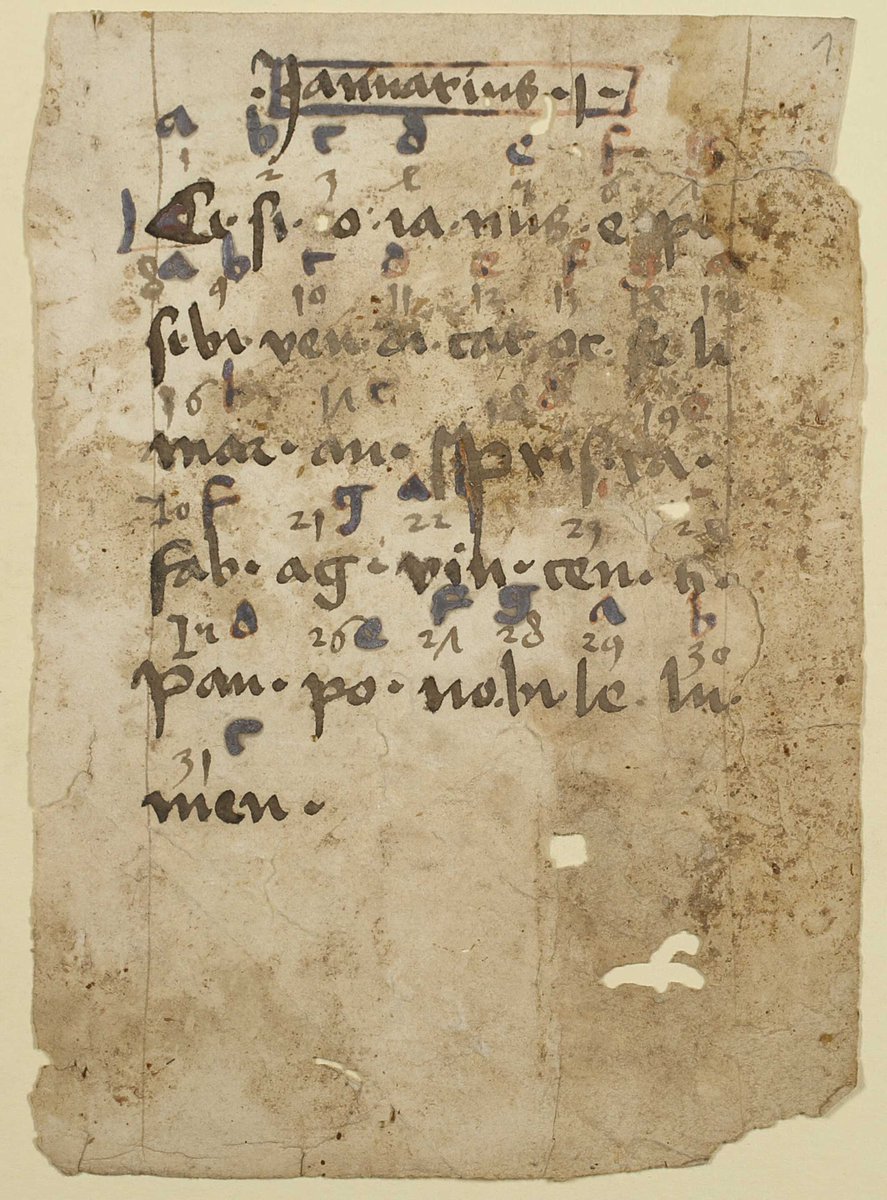 1
·Januarius·1·
a b c d e f g
1 2 3 4 5 6 7
Ci·si·o·ia·nus·e·pi·
a b c d e f g a
8 9 10 11 12 13 14 15
si·bi·ven·di·cat·oc·fe·li·
16 b 17 c 18 d 19 e
mar·an·pris·ca·
20 f 21 g 22 a 23 24
fab·ag·vin·cen·ti·
d e f g a b
25 26 27 28 29 30
pau·po·no·bi·le·lu·
c
31
men·